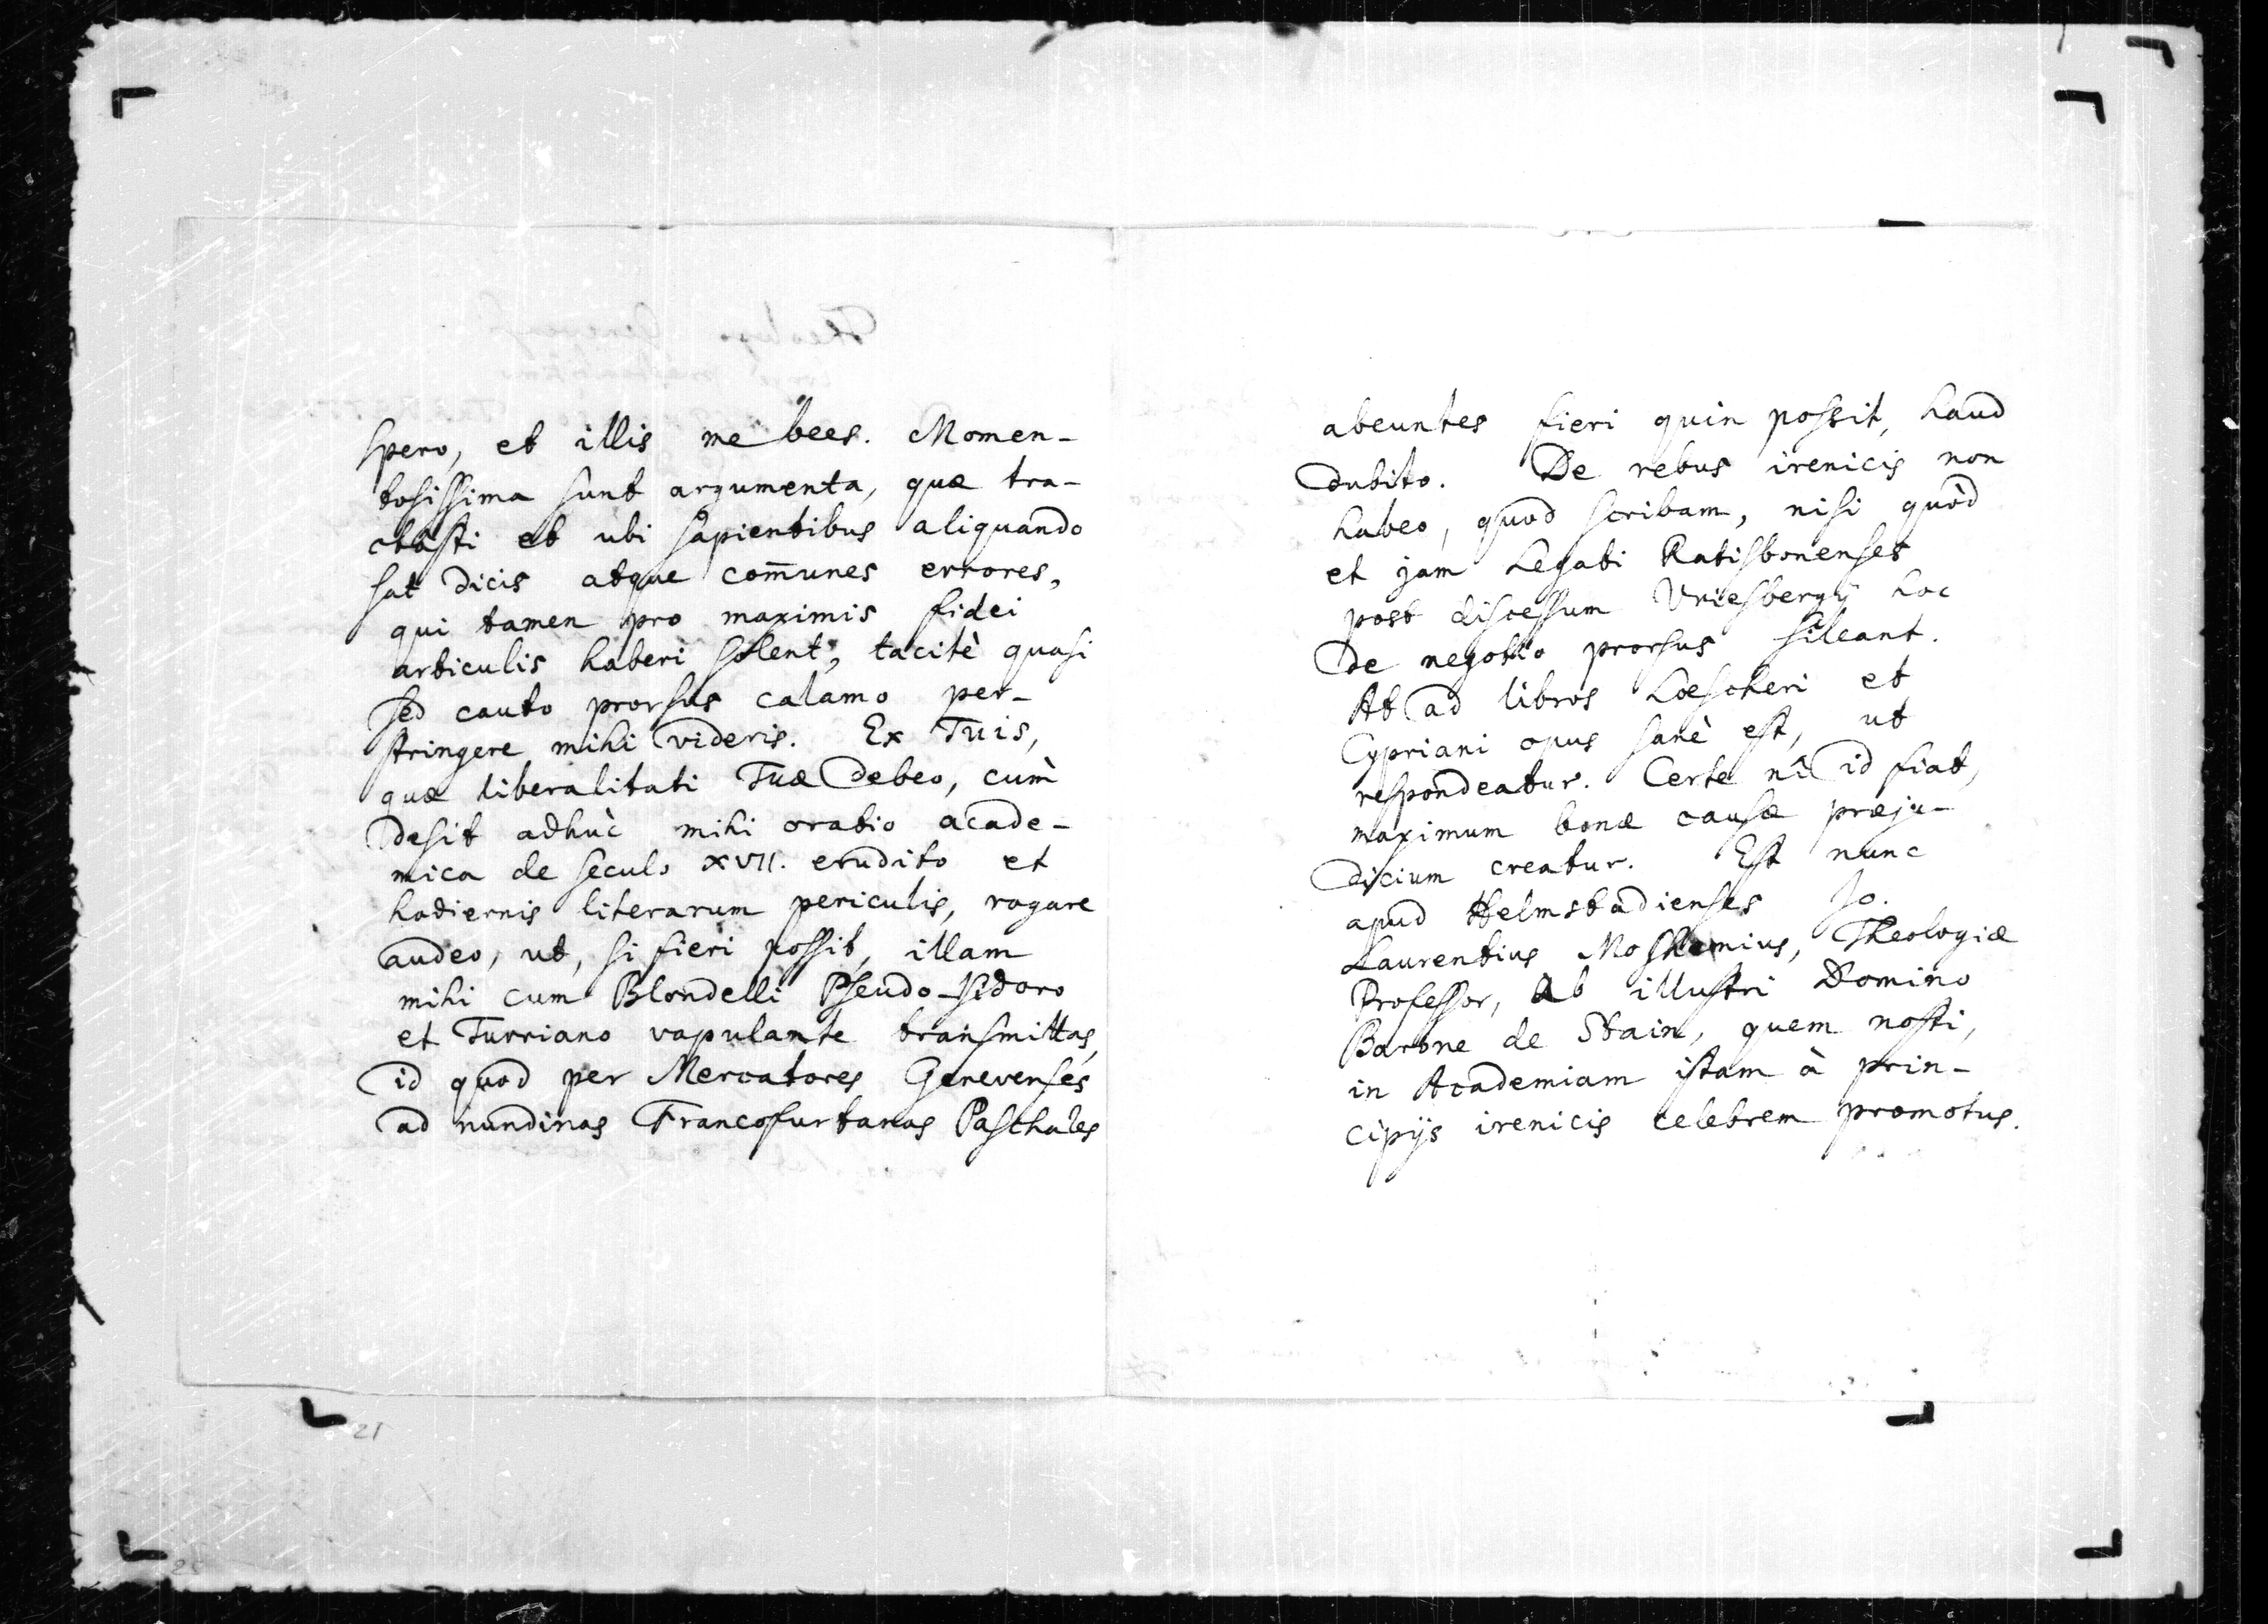 spero, et illis me bees. Momen-
tosissima sunt argumenta, quæ tra-
ctasti et ubi sapientibus aliquando
sat dicis atque com̄unes errores,
qui tamen pro maximis fidei
articulis haberi solent, tacitè quasi
sed cauto prorsus calamo per-
stringere mihi videris. Ex Tuis,
quæ liberalitati Tuæ debeo, cum
desit adhùc mihi oratio acade-
mica de seculo XVII. erudito et
hodiernis literarum periculis, rogare
audeo, ut, si fieri possit, illam
mihi cum Blondelli Pseudo-Isidoro
et Turriano vapulante transmittas,
id quod per Mercatores Genevenses
ad nundinas Francofurtanas Paschales
abeuntes fieri quin possit, haud
dubito. De rebus irenicis non
habeo, quod scribam, nisi quòd
et jam Legati Ratisbonenses
post discessum Vriesbergij hoc
de negotio prorsus sileant.
At ad libros Loescheri et
Cypriani opus sanè est, ut
respondeatur. Certe nî id fiat,
maximum bonæ causæ præju-
dicium creatur. Est nunc
apud Helmstadienses Jo.
Laurentius Moshemius, Theologiæ
Professor, ab illustri Domino
Barone de Stain, quem nosti,
in Academiam istam à prin-
cipijs irenicis celebrem promotus.
21